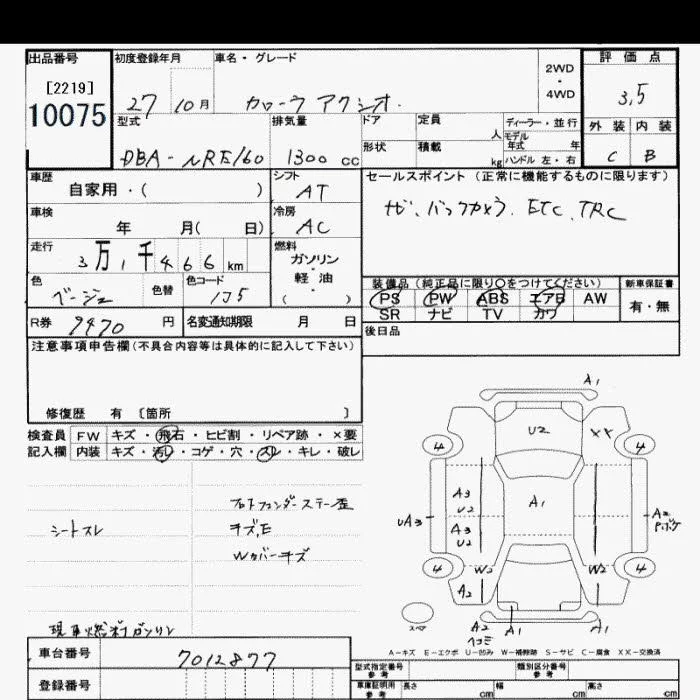 出品番号 初度登録年月 車名・グレード 2WD・4WD 評価点
[2219]
10075
27 10月 カローラ アクシオ. 3.5
型式 排気量 ドア 定員 人 ディーラー・並行 外装 内装
形状 積載 kg モデル年式 年 ハンドル 左・右
DBA-NRE160 1300 CC C B
車歴 自家用・( ) シフト AT セールスポイント (正常に機能するものに限ります)
車検 年 月( 日) 冷房 AC ナビ、バックカメラ、ETC、TRC
走行 3万1千466km 燃料 ガソリン・軽油・( )
色 ベージュ 色替 色コード 1J5
装備品 (純正品に限り○をつけてください) 新車保証書
PS PW ABS エアB AW 有・無
SR ナビ TV カワ
R券 9470円 名変通知期限 月 日 後日品
注意事項申告欄(不具合内容等は具体的に記入して下さい)
修復歴 有 〔箇所 〕
検査員 FW キズ・飛石・ヒビ割・リペア跡・×要
記入欄 内装 キズ・汚レ・コゲ・穴・スレ・キレ・破レ
シートスレ
フロントフェンダーステー歪
キズ,E
Wカバーキズ
現車燃料ガソリン
A1
U2 XX
4 4
A3 U2 A1
A3 U2
UA3 A2 Pボケ
W2 W2
4 4
A2
スペア A2 ヘコミ A1 A1
A-キズ E-エクボ U-凹み W-補修跡 S-サビ C-腐食 XX-交換済
車台番号 7012877
登録番号
型式指定番号 参考 類別区分番号 参考
車庫証明用 参考 長さ cm 幅 cm 高さ cm